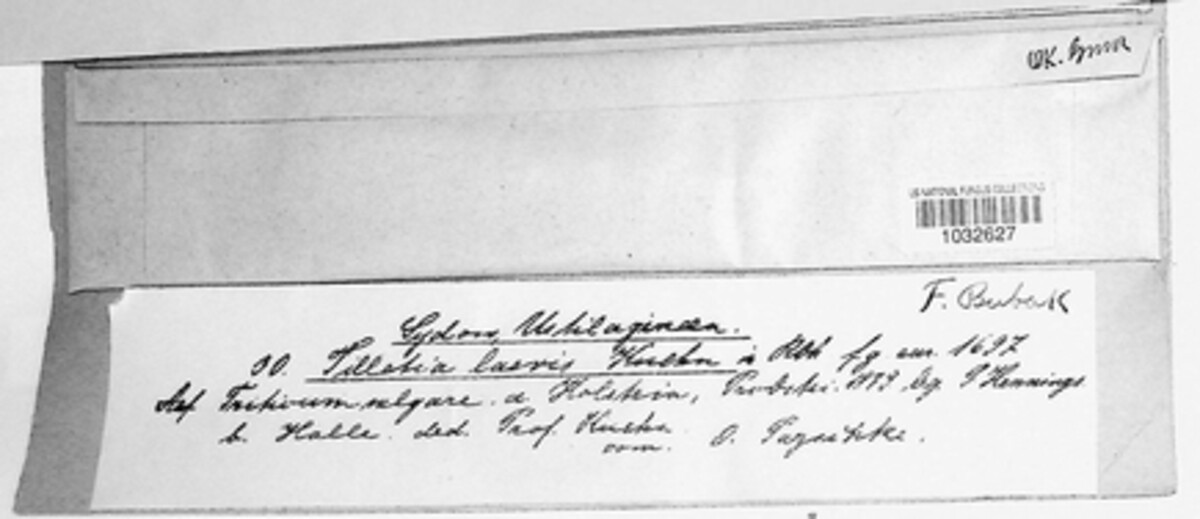 OK.
US NATIONAL FUNGUS COLLECTIONS
1032627
F. Bubak
Sydow, Ustilagineen.
Tilletia laevis Kuehn in Rbh fg eur. 1697
Auf Triticum vulgare. a Holstein, leg P Hennings.
b. Halle. ded. Prof. Kuehn
com. O. Pazschke.